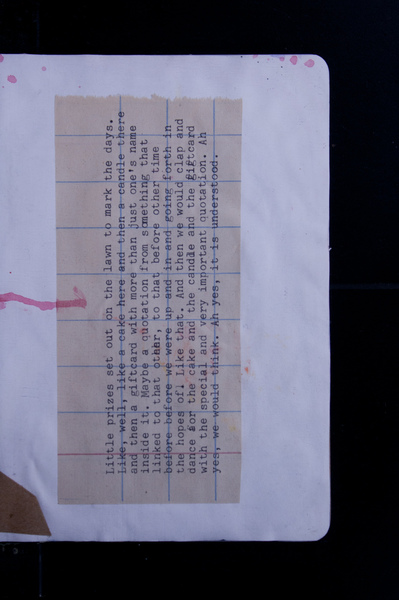 Little prizes set out on the lawn to mark the days.
Like, well, like a cake here and then a candle there
and then a giftcard with more than just one's name
inside it. Maybe a quotation from something that
linked to that other, to that before other time
before before we were up and in and going forth in
the hopes of. Like that. And then we would clap and
dance for the cake and the candle and the giftcard
with the special and very important quotation. Ah
yes, we would think. Ah yes, it is understood.